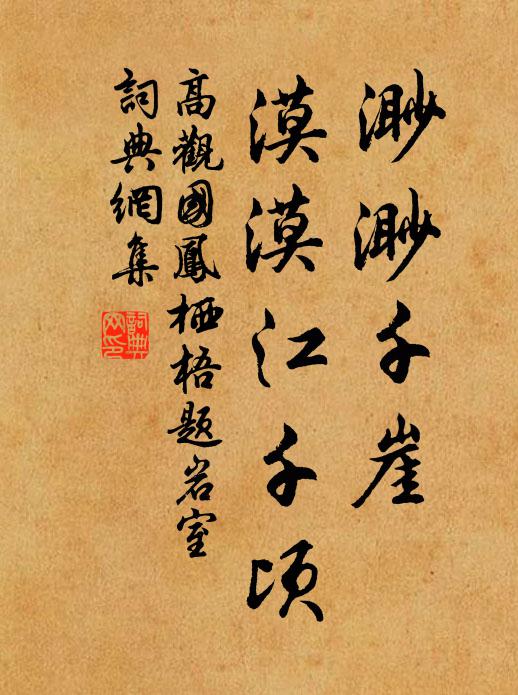 渺渺千崖
漠漠江千頃
高觀國鳳栖梧題岩室
詞典網集
詞典网印